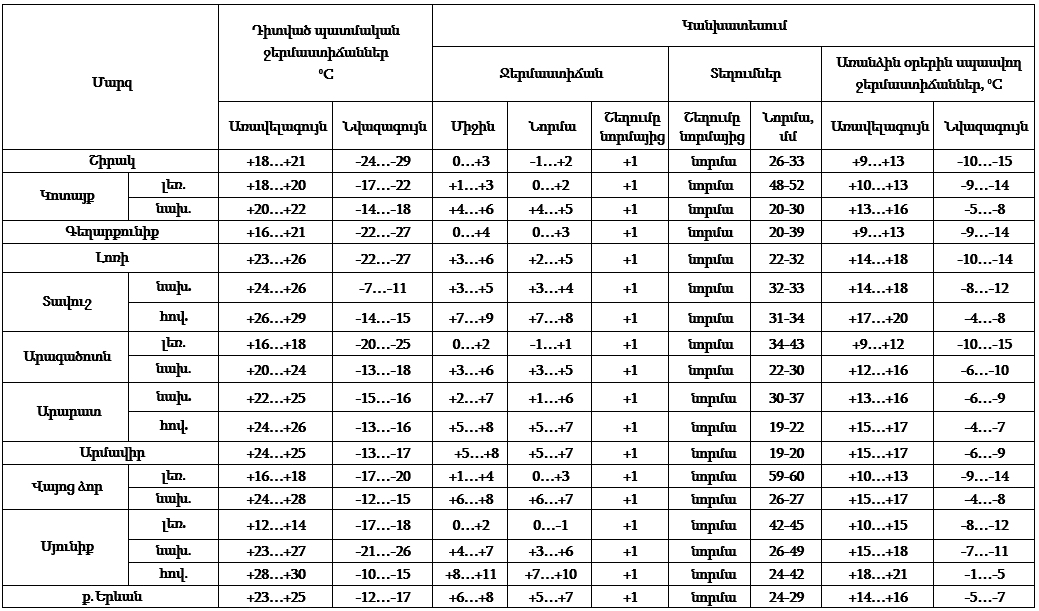 Մարզ
Դիտված պատմական
ջերմաստիճաններ
°C
Կանխատեսում
Ջերմաստիճան
Տեղումներ
Առանձին օրերին սպասվող
ջերմաստիճաններ, °C
Առավելագույն Նվազագույն Միջին Նորմա Շեղումը
նորմայից Շեղումը
նորմայից Նորմա,
մմ Առավելագույն Նվազագույն
Շիրակ +18…+21 -24…-29 0…+3 -1…+2 +1 նորմա 26-33 +9…+13 -10…-15
Կոտայք լեռ. +18…+20 -17…-22 +1…+3 0…+2 +1 նորմա 48-52 +10…+13 -9…-14
նախ. +20…+22 -14…-18 +4…+6 +4…+5 +1 նորմա 20-30 +13…+16 -5…-8
Գեղարքունիք +16…+21 -22…-27 0…+4 0…+3 +1 նորմա 20-39 +9…+13 -9…-14
Լոռի +23…+26 -22…-27 +3…+6 +2…+5 +1 նորմա 22-32 +14…+18 -10…-14
Տավուշ նախ. +24…+26 -7…-11 +3…+5 +3…+4 +1 նորմա 32-33 +14…+18 -8…-12
հով. +26…+29 -14…-15 +7…+9 +7…+8 +1 նորմա 31-34 +17…+20 -4…-8
Արագածոտն լեռ. +16…+18 -20…-25 0…+2 -1…+1 +1 նորմա 34-43 +9…+12 -10…-15
նախ. +20…+24 -13…-18 +3…+6 +3…+5 +1 նորմա 22-30 +12…+16 -6…-10
Արարատ նախ. +22…+25 -15…-16 +2…+7 +1…+6 +1 նորմա 30-37 +13…+16 -6…-9
հով. +24…+26 -13…-16 +5…+8 +5…+7 +1 նորմա 19-22 +15…+17 -4…-7
Արմավիր +24…+25 -13…-17 +5…+8 +5…+7 +1 նորմա 19-20 +15…+17 -6…-9
Վայոց ձոր լեռ. +16…+18 -17…-20 +1…+4 0…+3 +1 նորմա 59-60 +10…+13 -9…-14
նախ. +24…+28 -12…-15 +6…+8 +6…+7 +1 նորմա 26-27 +15…+17 -4…-8
Սյունիք լեռ. +12…+14 -17…-18 0…+2 0…-1 +1 նորմա 42-45 +10…+15 -8…-12
նախ. +23…+27 -21…-26 +4…+7 +3…+6 +1 նորմա 26-49 +15…+18 -7…-11
հով. +28…+30 -10…-15 +8…+11 +7…+10 +1 նորմա 24-42 +18…+21 -1…-5
ք.Երևան +23…+25 -12…-17 +6…+8 +5…+7 +1 նորմա 24-29 +14…+16 -5…-7